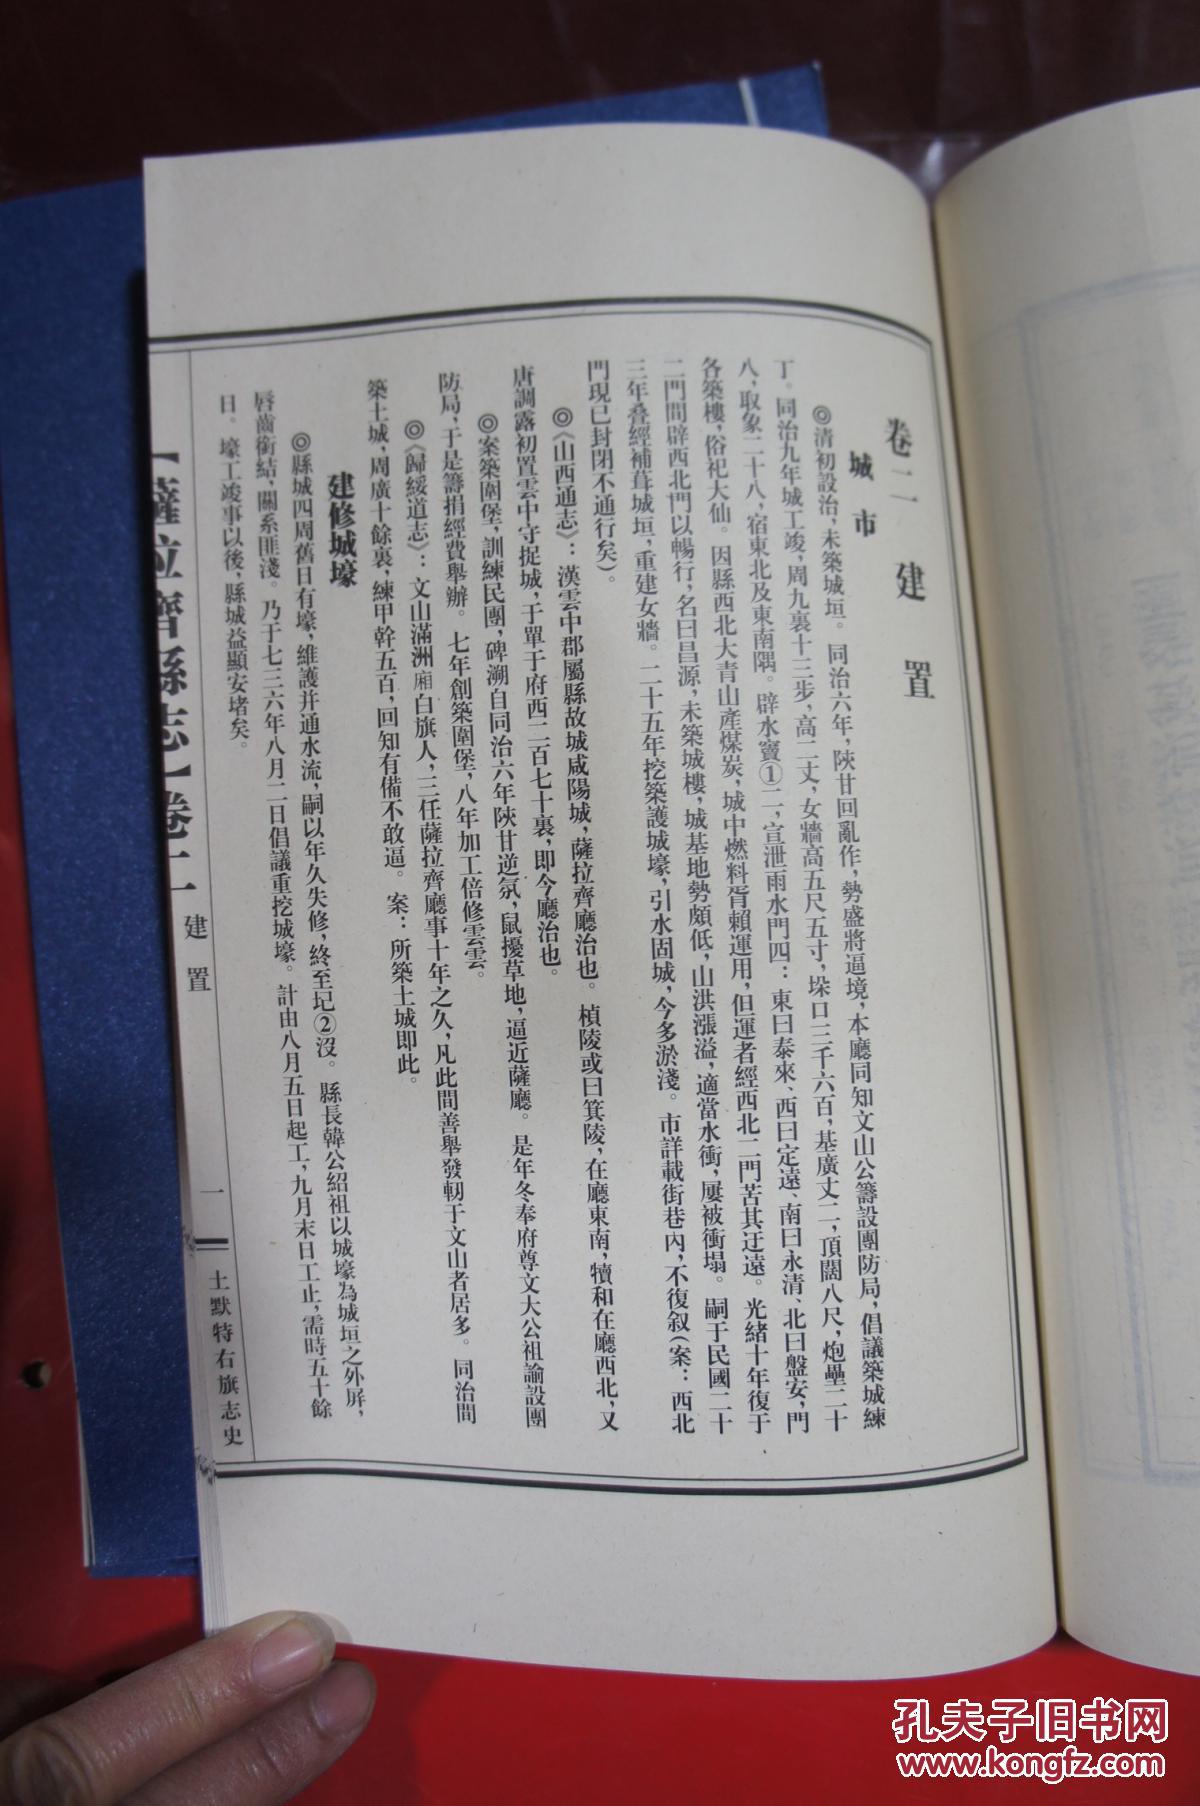 卷二　建置
城市
◎清初設治，未築城垣。同治六年，陝甘回亂作，勢盛將逼境，本廳同知文山公籌設團防局，倡議築城練
丁。同治九年城工竣，周九裏十三步，高二丈，女牆高五尺五寸，垛口三千六百，基廣丈二，頂闊八尺，炮壘二十
八，取象二十八，宿東北及東南隅。辟水竇①二，宣泄雨水門四：東曰泰來、西曰定遠、南曰永清、北曰盤安，門
各築樓，俗祀大仙。因縣西北大青山產煤炭，城中燃料胥賴運用，但運者經西北二門苦其迂遠。光緒十年復于
二門間辟西北門以暢行，名曰昌源，未築城樓，城基地勢頗低，山洪漲溢，適當水衝，屢被衝塌。嗣于民國二十
三年叠經補葺城垣，重建女牆。二十五年挖築護城壕，引水固城，今多淤淺。市詳載街巷內，不復叙（案：西北
門現已封閉不通行矣）。
◎《山西通志》：漢雲中郡屬縣故城咸陽城，薩拉齊廳治也。楨陵或曰箕陵，在廳東南，犢和在廳西北，又
唐調露初置雲中守捉城，于單于府西二百七十裏，即今廳治也。
◎案築圍堡，訓練民團，碑溯自同治六年陝甘逆氛，鼠擾草地，逼近薩廳。是年冬奉府尊文大公祖諭設團
防局，于是籌捐經費舉辦。七年創築圍堡，八年加工倍修雲雲。
◎《歸綏道志》：文山滿洲廂白旗人，三任薩拉齊廳事十年之久，凡此間善舉發軔于文山者居多。同治間
築土城，周廣十餘裏，練甲幹五百，回知有備不敢逼。案：所築土城即此。
建修城壕
◎縣城四周舊日有壕，維護并通水流，嗣以年久失修，終至圮②沒。縣長韓公紹祖以城壕為城垣之外屏，
唇齒銜結，關系匪淺。乃于七三六年八月二日倡議重挖城壕。計由八月五日起工，九月末日工止，需時五十餘
日。壕工竣事以後，縣城益顯安堵矣。
【薩拉齊縣志】卷二　建置
一
土默特右旗志史
孔夫子旧书网
www.kongfz.com